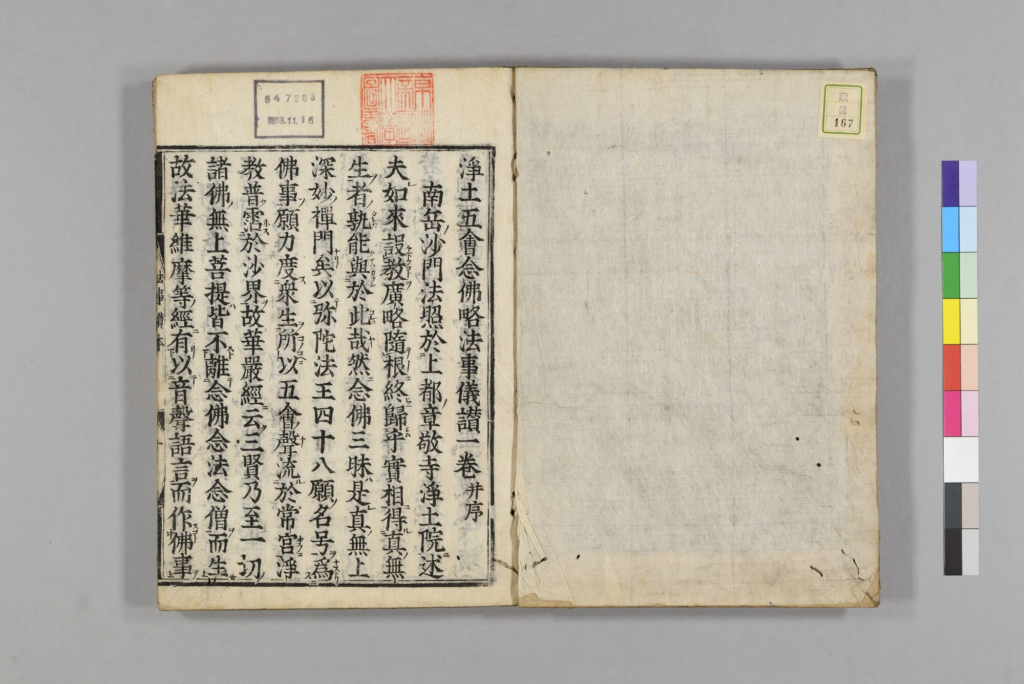 淨土五會念佛略法事儀讃一卷并序
南岳沙門法照於上都章敬寺淨土院述
夫如來設教廣略隨根終歸乎實相得真無
生者孰能與於此哉然念佛三昧是真無上
深妙禪門矣以弥陀法王四十八願名号爲
佛事願力度衆生所以五會聲流於常宮淨
教普霑於沙界故華嚴經云三賢乃至一切
諸佛無上菩提皆不離念佛念法念僧而生
故法華維摩等經有以音聲語言而作佛事
法事讃本
167